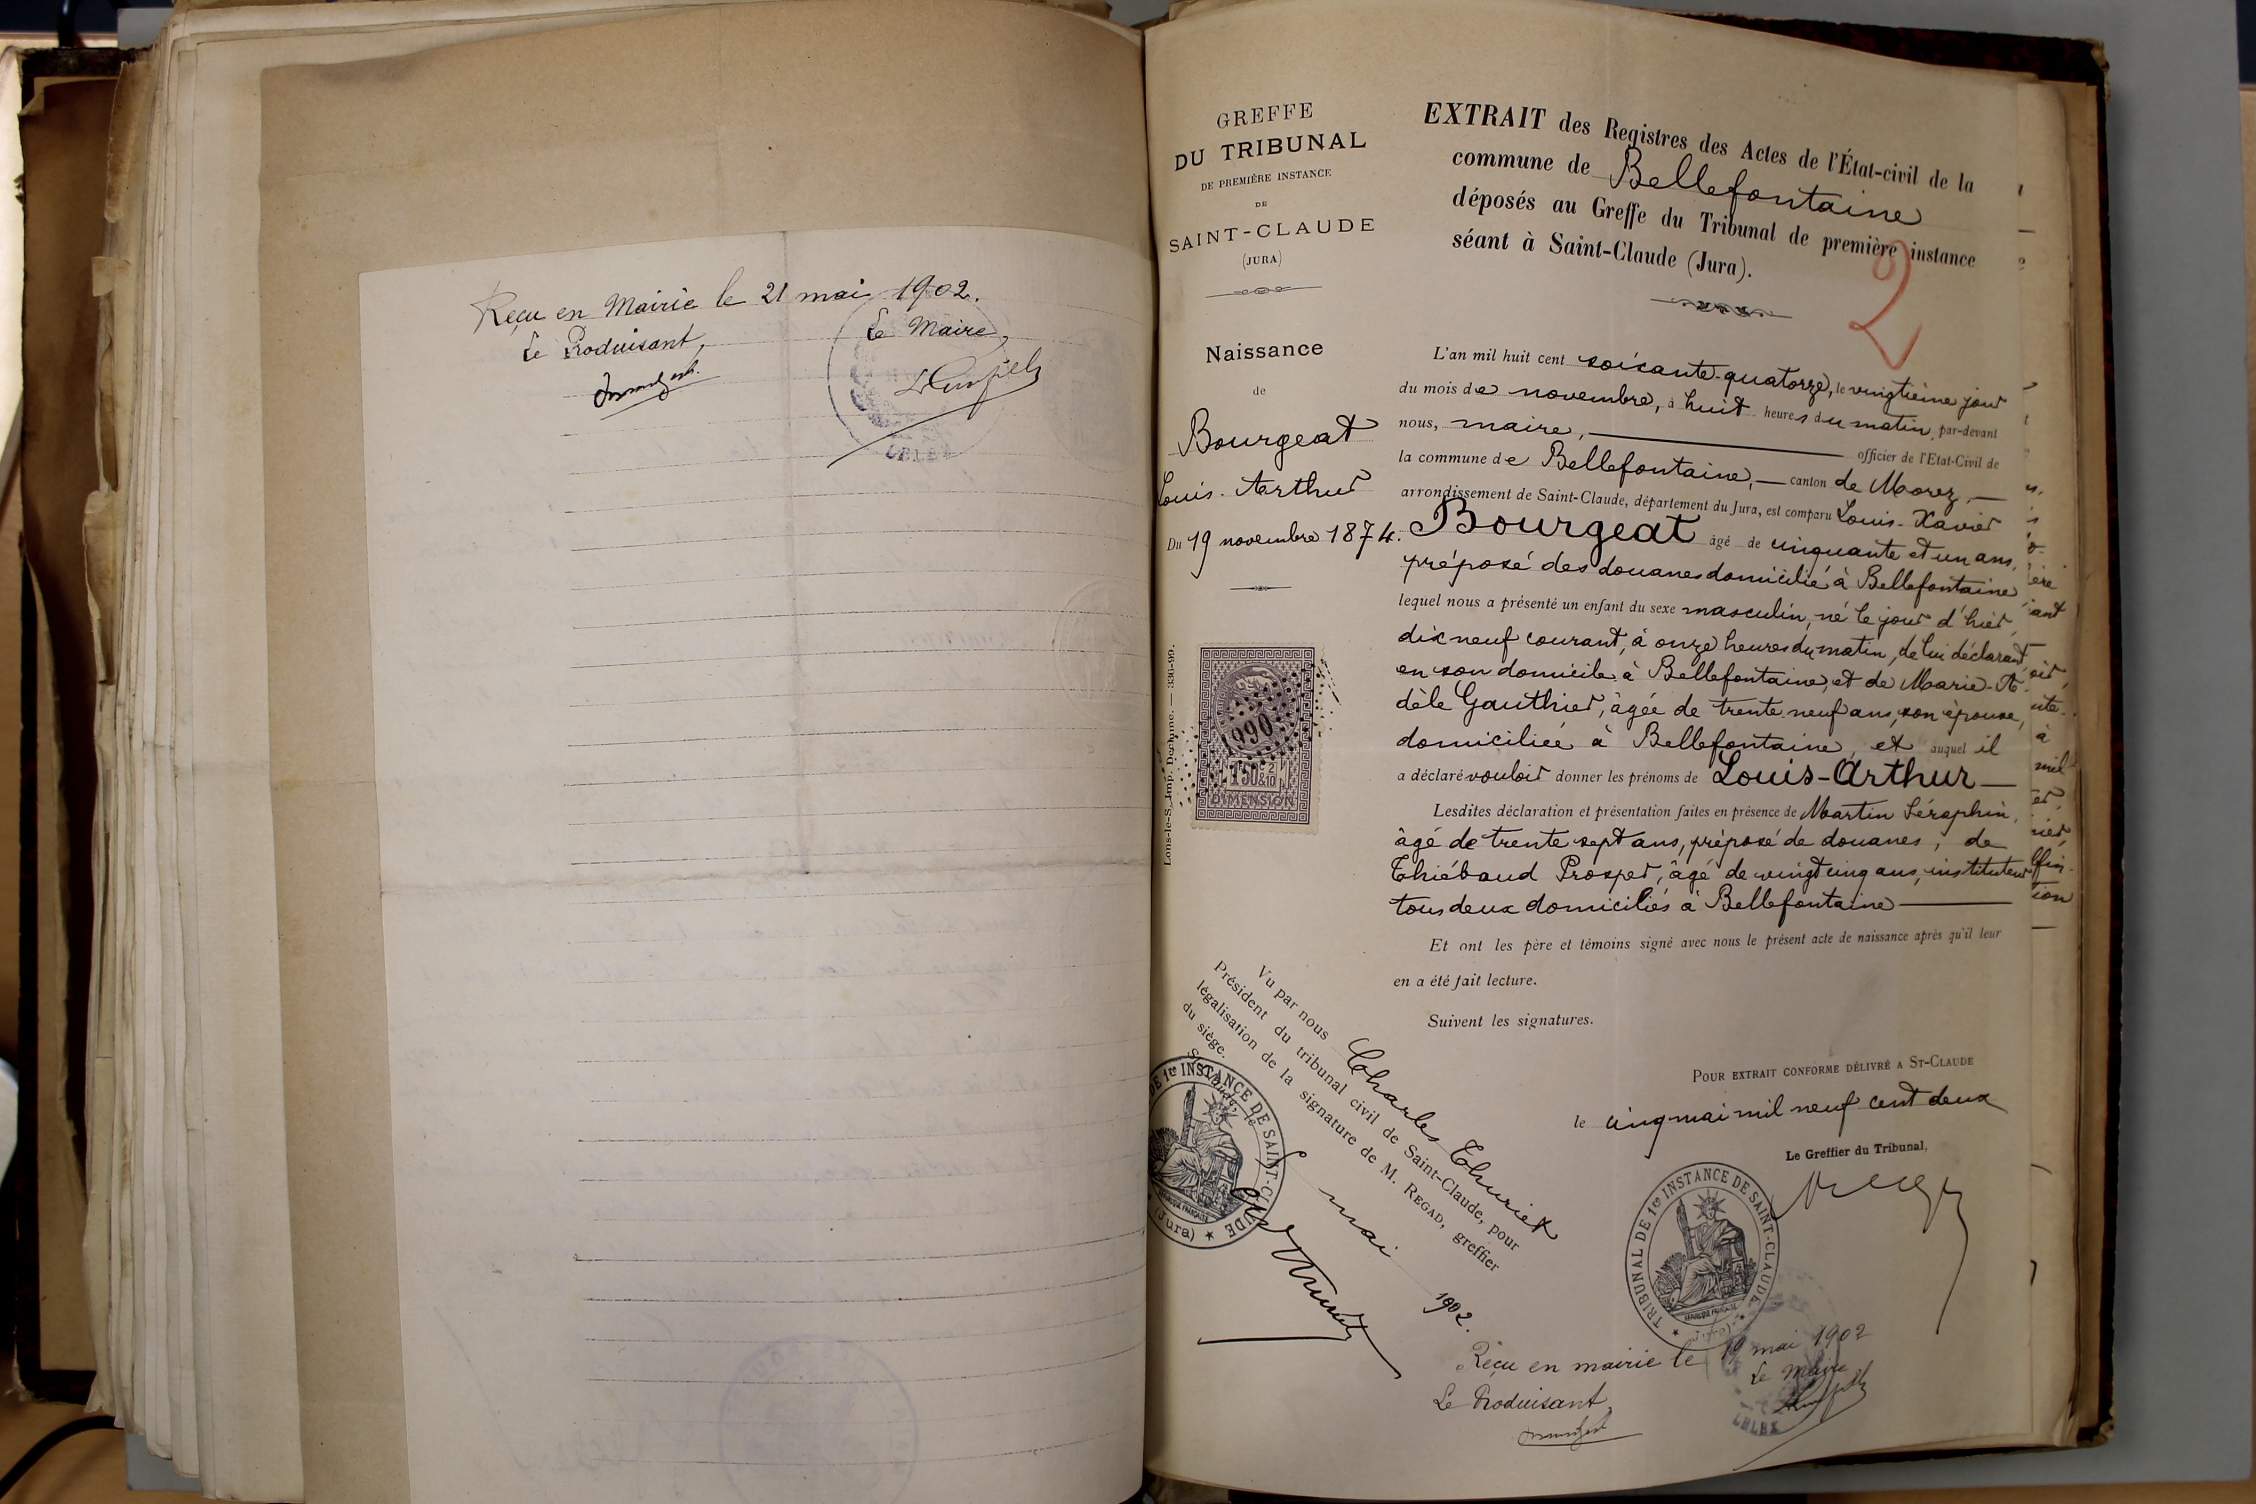 Reçu en Mairie le 21 mai 1902.
Le Produisant,
Le Maire,
LELEX
GREFFE
DU TRIBUNAL
DE PREMIÈRE INSTANCE
DE
SAINT-CLAUDE
(JURA)
Naissance
de
Bourgeat
Louis-Arthur
Du 19 novembre 1874.
Lons-le-S., Imp. Declume. — 336-99.
1990
1F 50c & 2/10
DIMENSION
EXTRAIT des Registres des Actes de l'État-civil de la
commune de Bellefontaine
déposés au Greffe du Tribunal de première instance
séant à Saint-Claude (Jura).
2
L'an mil huit cent soixante-quatorze, le vingtième jour
du mois de novembre, à huit heures du matin, par-devant
nous, maire, officier de l'Etat-Civil de
la commune de Bellefontaine, — canton de Morez, —
arrondissement de Saint-Claude, département du Jura, est comparu Louis-Xavier
Bourgeat âgé de cinquante et un ans,
préposé des douanes domicilié à Bellefontaine,
lequel nous a présenté un enfant du sexe masculin, né le jour d'hier,
dix neuf courant, à onze heures du matin, de lui déclarant,
en son domicile à Bellefontaine, et de Marie-A-
dèle Gauthier, âgée de trente neuf ans, son épouse,
domiciliée à Bellefontaine, et auquel il
a déclaré vouloir donner les prénoms de Louis-Arthur —
Lesdites déclaration et présentation faites en présence de Martin Séraphin,
âgé de trente sept ans, préposé de douanes, de
Thiébaud Prosper, âgé de vingt cinq ans, instituteur
tous deux domiciliés à Bellefontaine —
Et ont les père et témoins signé avec nous le présent acte de naissance après qu'il leur
en a été fait lecture.
Suivent les signatures.
POUR EXTRAIT CONFORME DÉLIVRÉ A ST-CLAUDE
le cinq mai mil neuf cent deux
Le Greffier du Tribunal,
TRIBUNAL DE 1re INSTANCE DE SAINT-CLAUDE
★ (Jura) ★
Vu par nous Charles Thuriet
Président du tribunal civil de Saint-Claude, pour
légalisation de la signature de M. REGAD, greffier
du siège.
St-Claude, le 5 mai 1902.
DE 1re INSTANCE DE SAINT-CLAUDE
(Jura) ★
Ch. Thuriet
Reçu en mairie le 19 mai 1902
Le Produisant,
Le Maire
LELEX